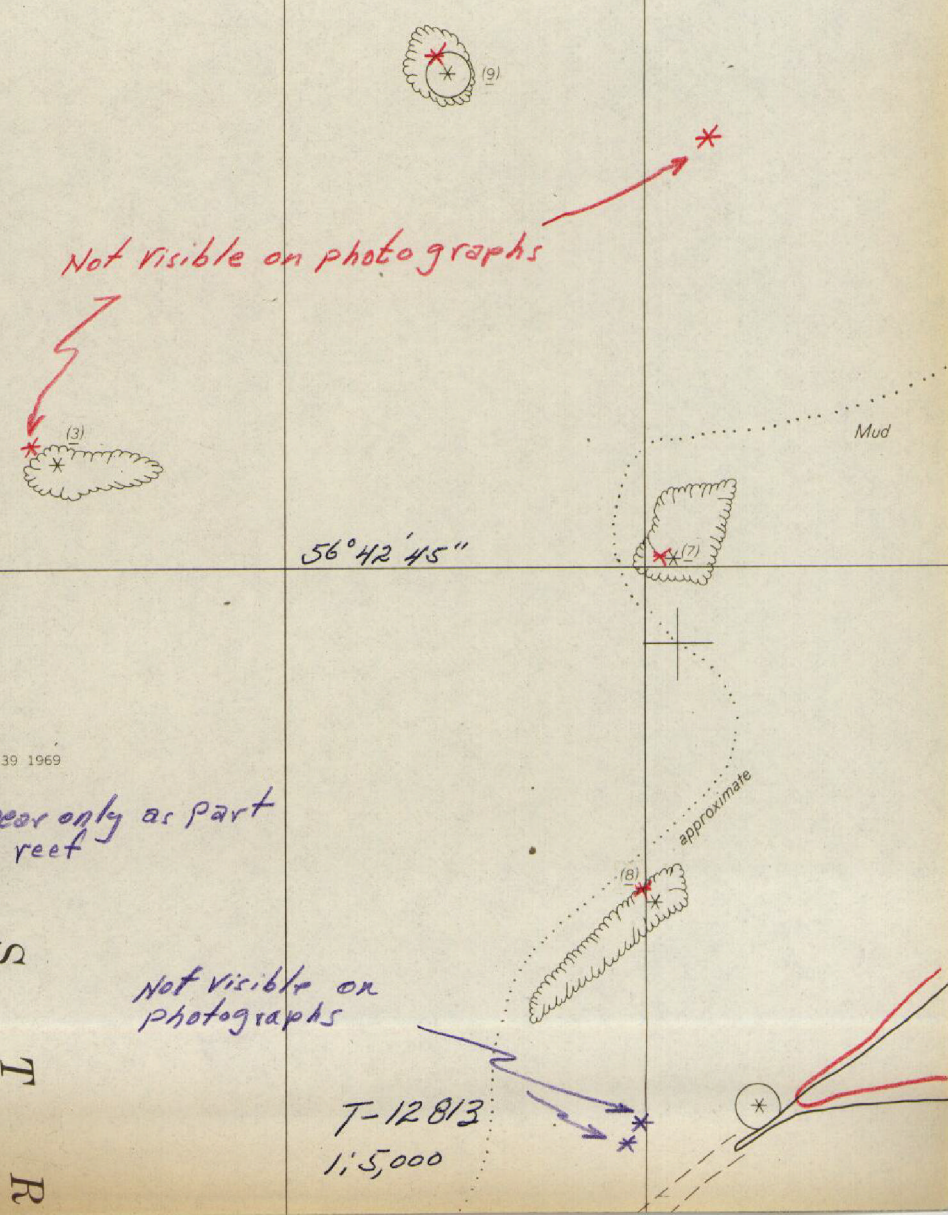 (9)
Not visible on photographs
(3)
Mud
56°42'45"
(7)
39 1969
ear only as part
reef
approximate
(8)
Not visible on
photographs
T-12813
1:5,000
S
T
R